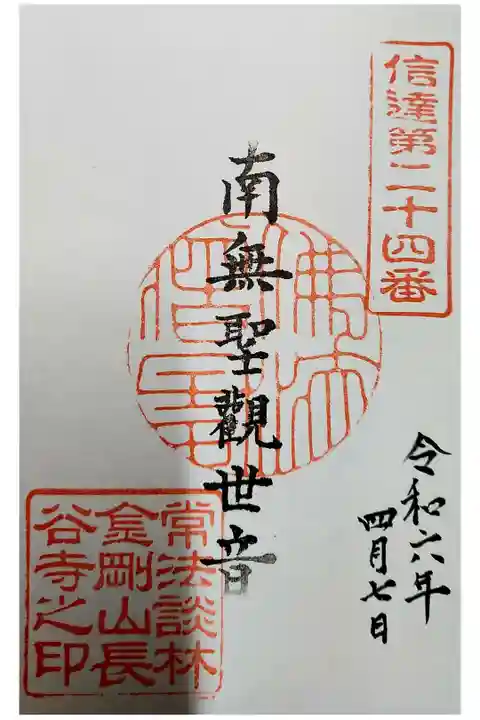 信達第二十四番
南無聖觀世音
令和六年
四月七日
佛法僧宝
常法談林
金剛山長
谷寺之印